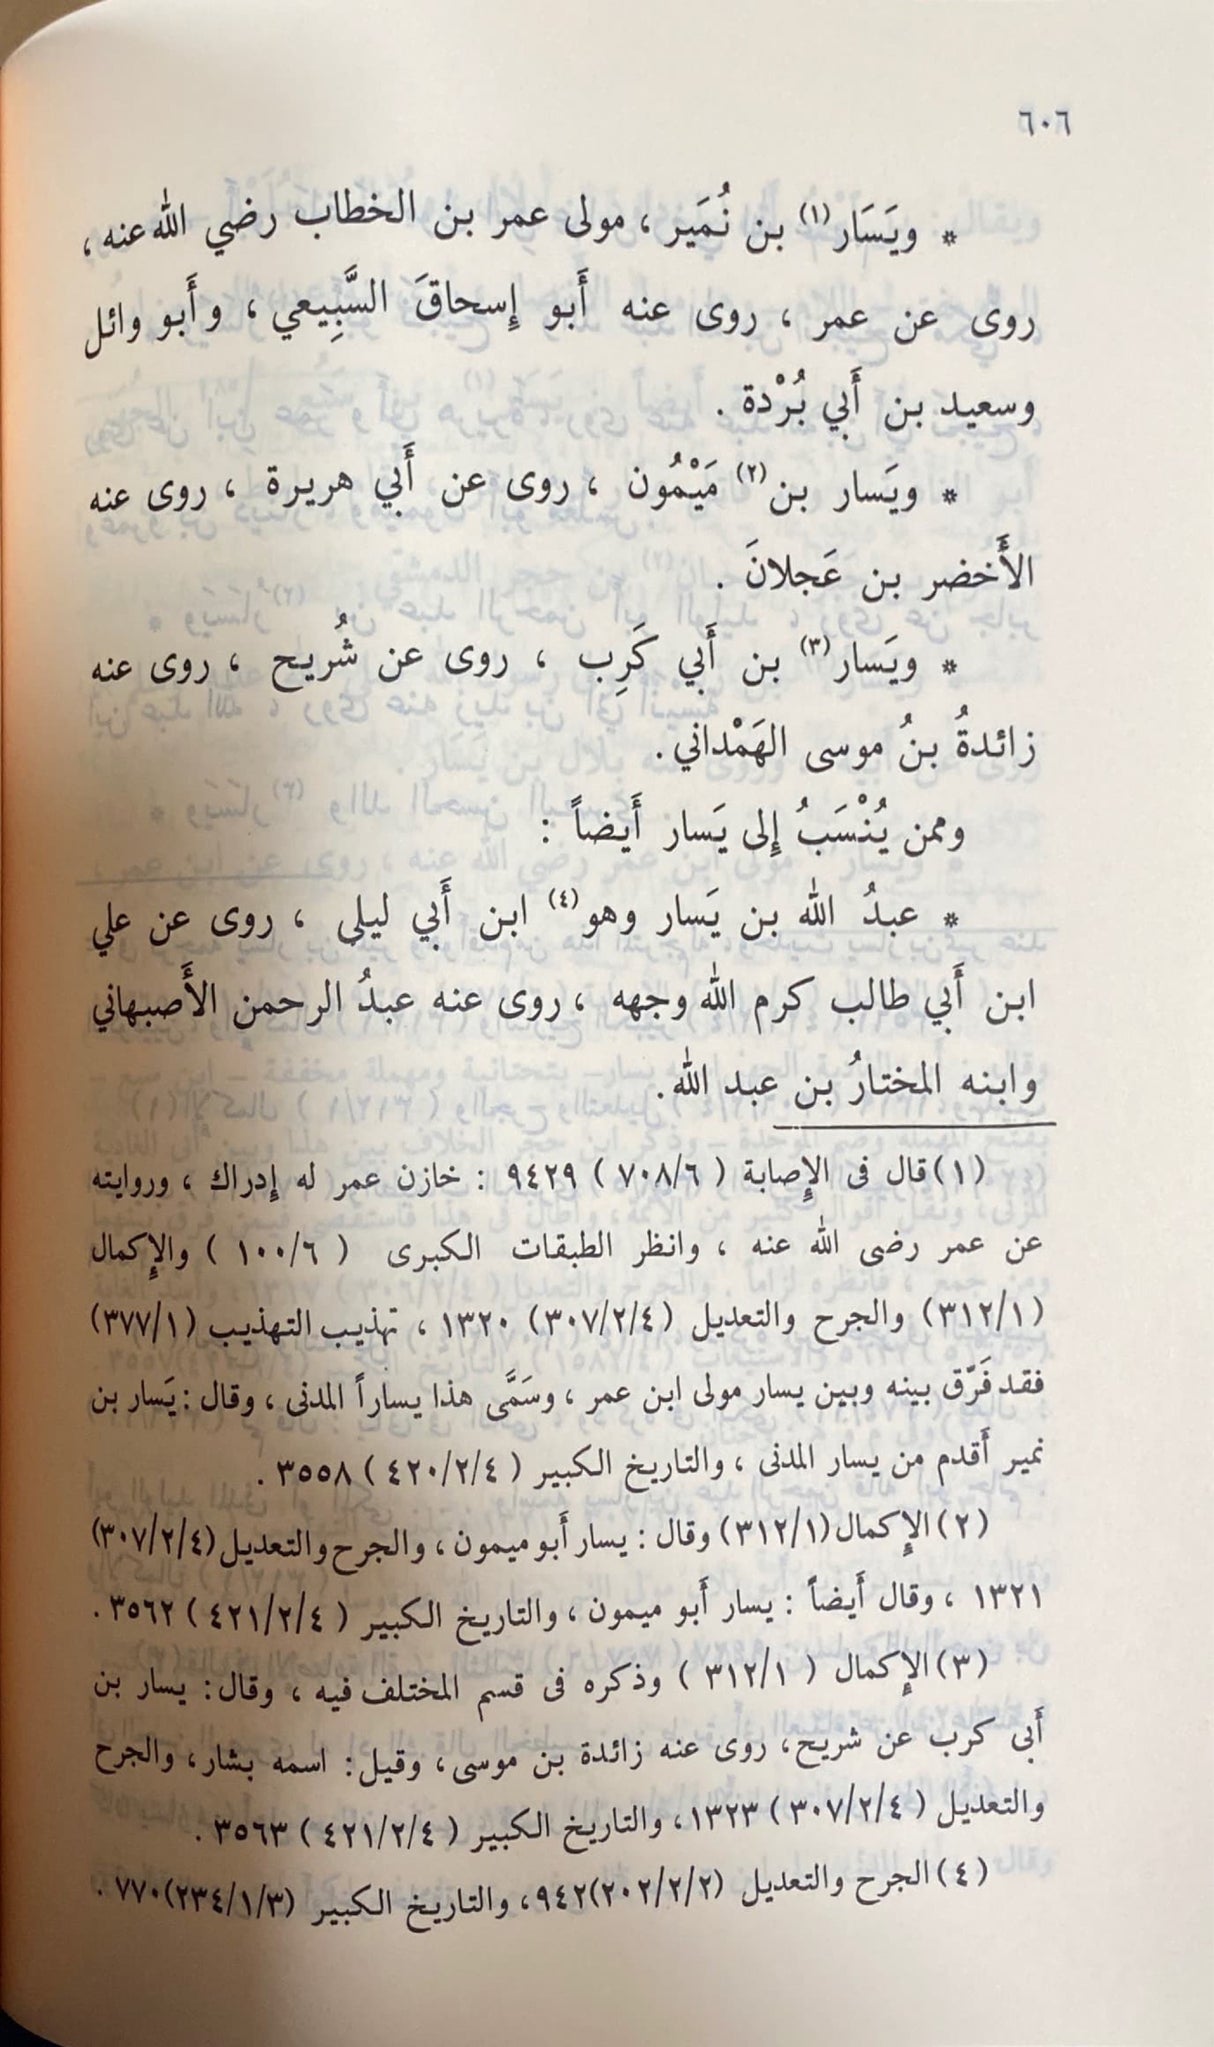 ٦٠٦
* ويَسَار(١) بن نُمَير ، مولى عمر بن الخطاب رضي الله عنه ،
روى عن عمر ، روى عنه أَبو إِسحاقَ السَّبِيعي ، وأَبو وائل
وسعيد بن أَبي بُرْدة .
* ويَسار بن(٢) مَيْمُون ، روى عن أَبي هريرة ، روى عنه
الأَخضر بن عَجلانَ .
* ويَسار(٣) بن أَبي كَرِب ، روى عن شُريح ، روى عنه
زائدةُ بنُ موسى الهَمْداني .
وممن يُنْسَبُ إِلى يَسار أَيضاً :
* عبدُ الله بن يَسار وهو(٤) ابن أَبي ليلى ، روى عن علي
ابن أَبي طالب كرم الله وجهه ، روى عنه عبدُ الرحمن الأَصبهاني
وابنه المختارُ بن عبد الله .
(١) قال فى الإِصابة ( ٧٠٨/٦ ) ٩٤٢٩ : خازن عمر له إِدراك ، وروايته
عن عمر رضى الله عنه ، وانظر الطبقات الكبرى ( ١٠٠/٦ ) والإِكمال
(٣١٢/١) والجرح والتعديل (٣٠٧/٢/٤) ١٣٢٠ ، تهذيب التهذيب (٣٧٧/١)
فقد فَرّق بينه وبين يسار مولى ابن عمر ، وسَمَّى هذا يساراً المدنى ، وقال : يَسار بن
نمير أَقدم من يسار المدنى ، والتاريخ الكبير ( ٤٢٠/٢/٤ ) ٣٥٥٨ .
(٢) الإِكمال (٣١٢/١) وقال : يسار أَبو ميمون ، والجرح والتعديل (٣٠٧/٢/٤)
١٣٢١ ، وقال أَيضاً : يسار أَبو ميمون ، والتاريخ الكبير ( ٤٢١/٢/٤ ) ٣٥٦٢ .
(٣) الإِكمال ( ٣١٢/١ ) وذكره فى قسم المختلف فيه ، وقال : يسار بن
أَبى كرب عن شريح ، روى عنه زائدة بن موسى ، وقيل : اسمه بشار ، والجرح
والتعديل ( ٣٠٧/٢/٤ ) ١٣٢٣ ، والتاريخ الكبير ( ٤٢١/٢/٤ ) ٣٥٦٣ .
(٤) الجرح والتعديل (٢٠٢/٢/٢)٩٤٢ ، والتاريخ الكبير (٢٣٤/١/٣)٧٧٠ .